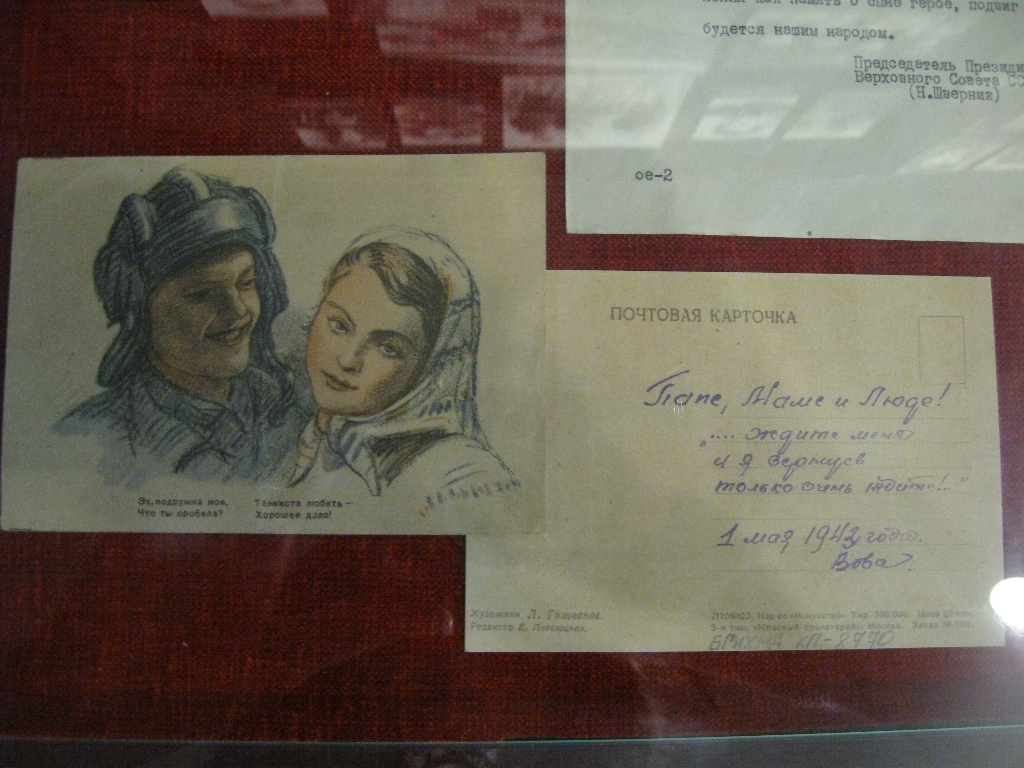 о сыне герое, подвиг
будется нашим народом.
Председатель Президи
Верховного Совета СС
(Н.Шверник)
ое-2
Эх, подружка моя,
Что ты оробела?
Танкиста любить—
Хорошее дело!
ПОЧТОВАЯ КАРТОЧКА
Папе, Маме и Люде!
„.... ждите меня
и я вернусь
только очень ждите!.."
1 мая 1942 года.
Вова
Художник Л. Голованов.
Редактор Е.
Изд-во «Искусство». Тир. Цена 20 коп.
3-я тип. «Красный пролетарий». Москва. Заказ №
КП-8770